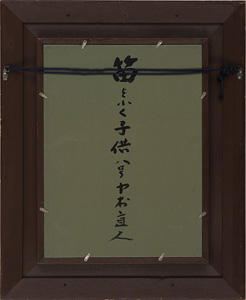 笛をふく子供八号中村直人